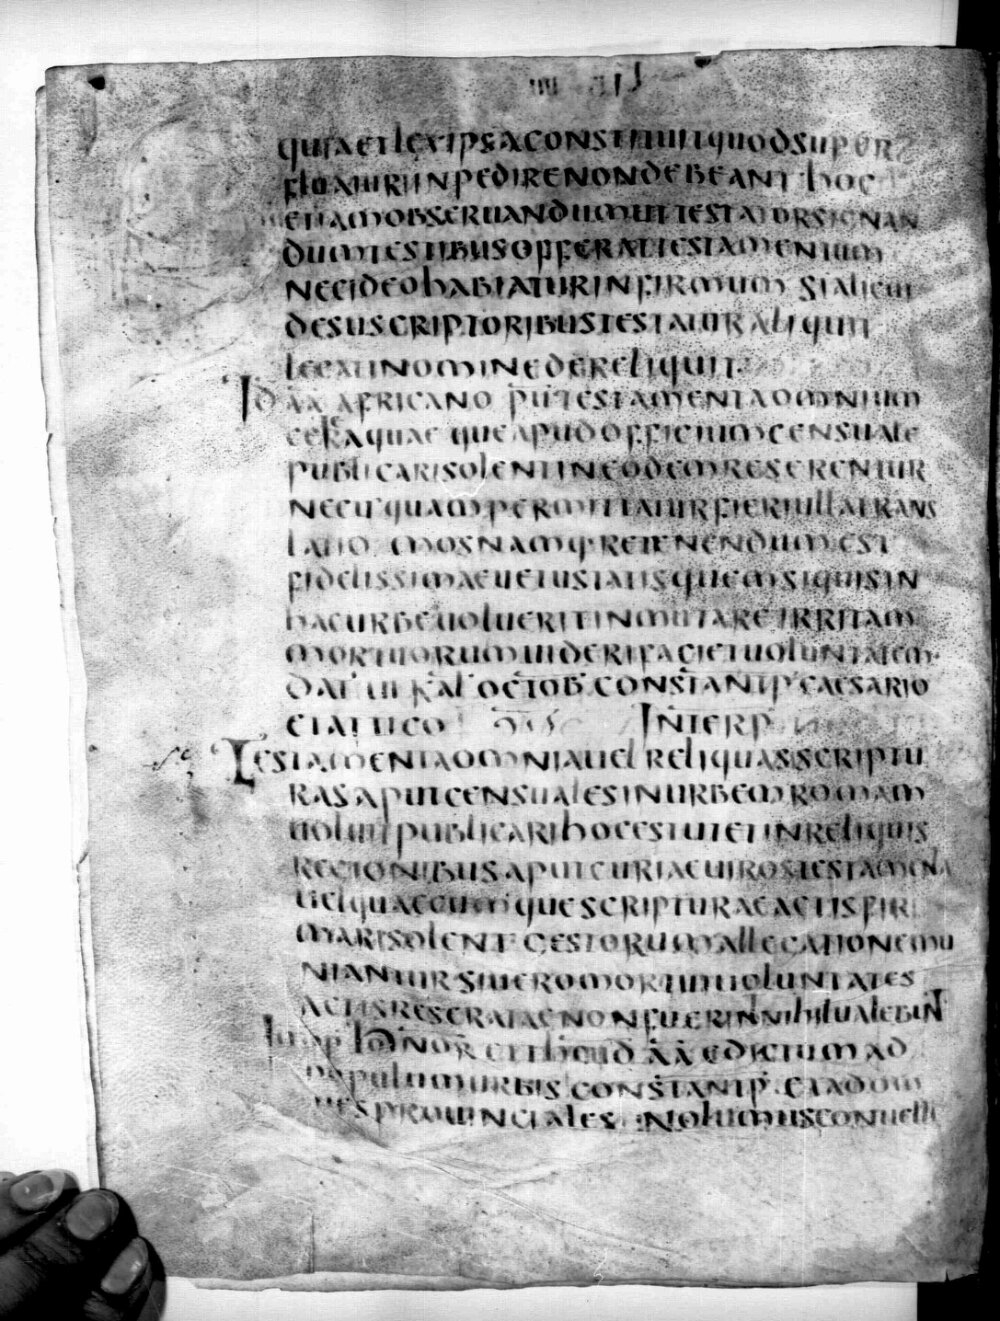 IIII LIB
quia et lex ipsa constituit quod super
flua iuri inpedire non debeant hoc
etiam obseruandum ut testator signan
dum testibus offerat testamentum
nec ideo habiatur infirmum si alicui
de suscriptoribus testatur aliquit
legati nomine dereliquit
Id aa africano pu testamenta omnium
ceraquae que apud officium censuale
publicari solent in eodem reserentur
nec usquam permittatur fieri ulla trans
latio mos namq retenendum est
fidelissimae uetustatis quem siquis in
hac urbe uoluerit inmutare irritam
mortuorum uideri faciet uoluntatem
dat iii kal octob constantip caesario
et attico Interp
Testamenta omnia uel reliquas scriptu
ras aput censuales in urbem romam
uoluit publicari hoc est ut et in reliquis
regionibus aput curiae uiros testamenta
uel quaecumque scripturae actis fir
mari solent gestorum allegatione mu
niantur si uero mortui uoluntates
actis reseratae non fuerint nihil ualebunt
Impp honor et theud aa edictum ad
populum urbis constantip et ad om
nes prouinciales nolumus conuelli